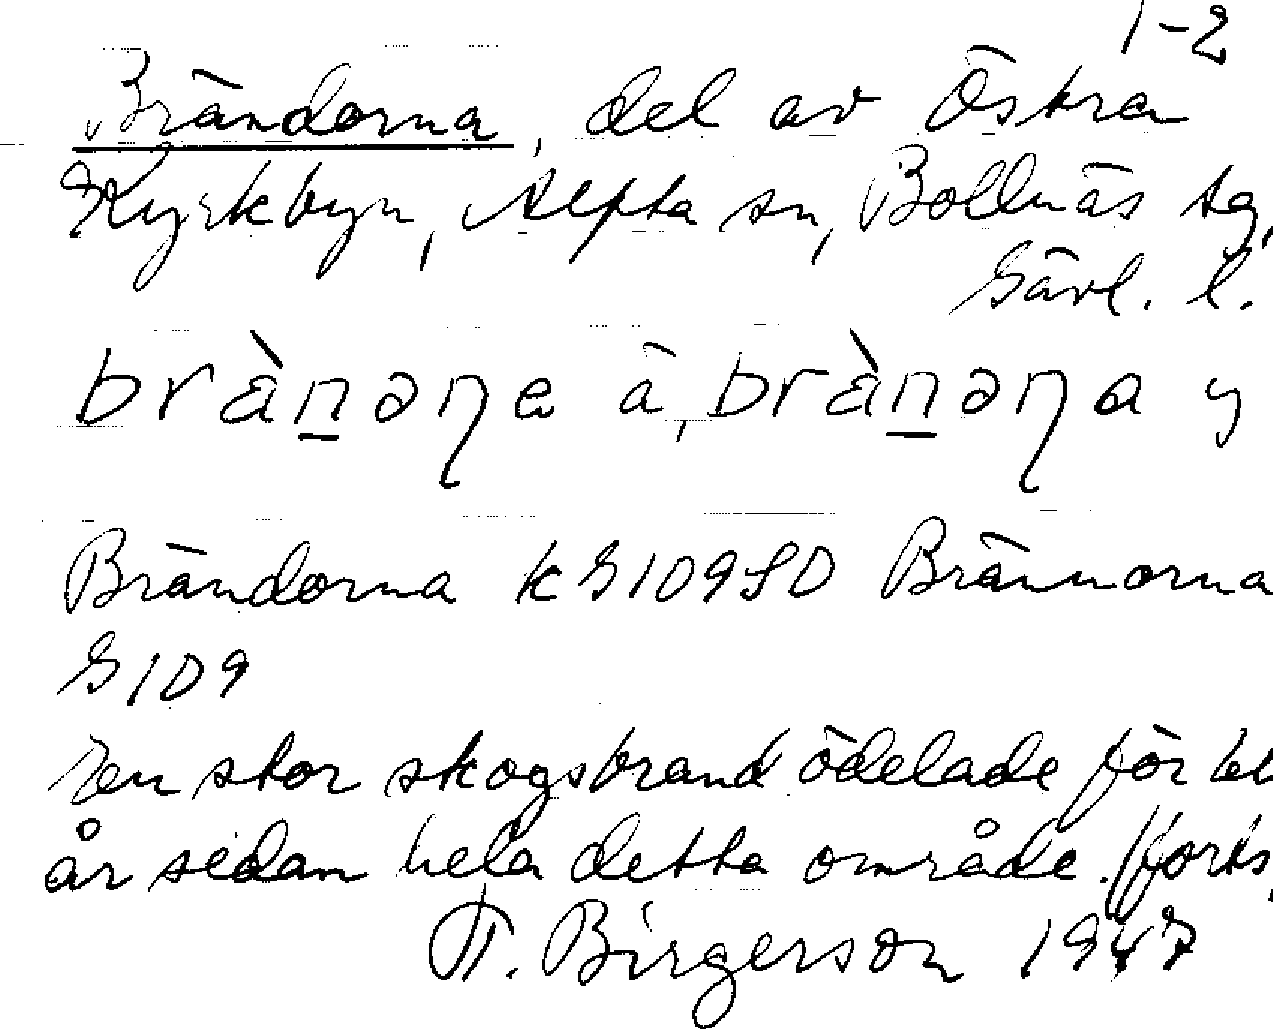 1-2
Brändorna, del av Östra
Kyrkbyn, Alfta sn, Bollnäs tg,
Gävl. l.
brànəɳa ä, brànəɳa y
Brändorna k G109SO Brännorna
G109
en stor skogsbrand ödelade för
år sedan hela detta område. (forts.
T. Birgerson 1947